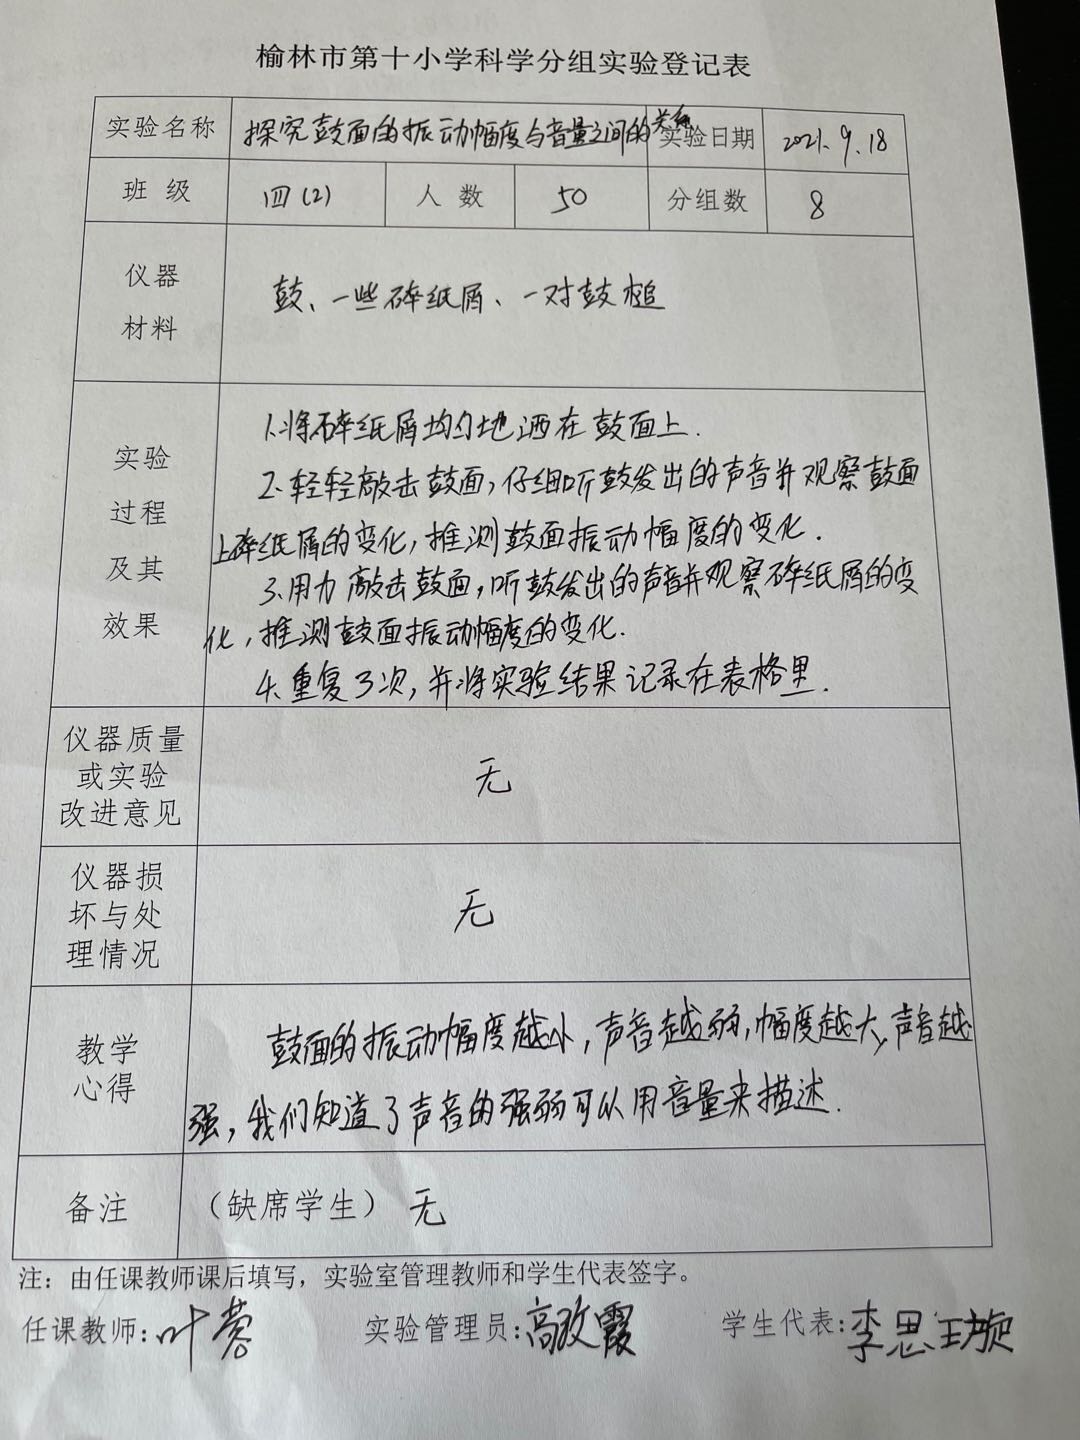 榆林市第十小学科学分组实验登记表
实验名称 探究鼓面的振动幅度与音量之间的关系 实验日期 2021.9.18
班 级 四(2) 人 数 50 分组数 8
仪器
材料
鼓、一些碎纸屑、一对鼓槌
实验
过程
及其
效果
1.将碎纸屑均匀地洒在鼓面上.
2.轻轻敲击鼓面,仔细听鼓发出的声音并观察鼓面
上碎纸屑的变化,推测鼓面振动幅度的变化.
3.用力敲击鼓面,听鼓发出的声音并观察碎纸屑的变
化,推测鼓面振动幅度的变化.
4.重复3次,并将实验结果记录在表格里.
仪器质量
或实验
改进意见
无
仪器损
坏与处
理情况
无
教学
心得
鼓面的振动幅度越小,声音越弱,幅度越大,声音越
强,我们知道了声音的强弱可以用音量来描述.
备注 (缺席学生) 无
注:由任课教师课后填写,实验室管理教师和学生代表签字。
任课教师:叶蓉 实验管理员:高改霞 学生代表:李思璇